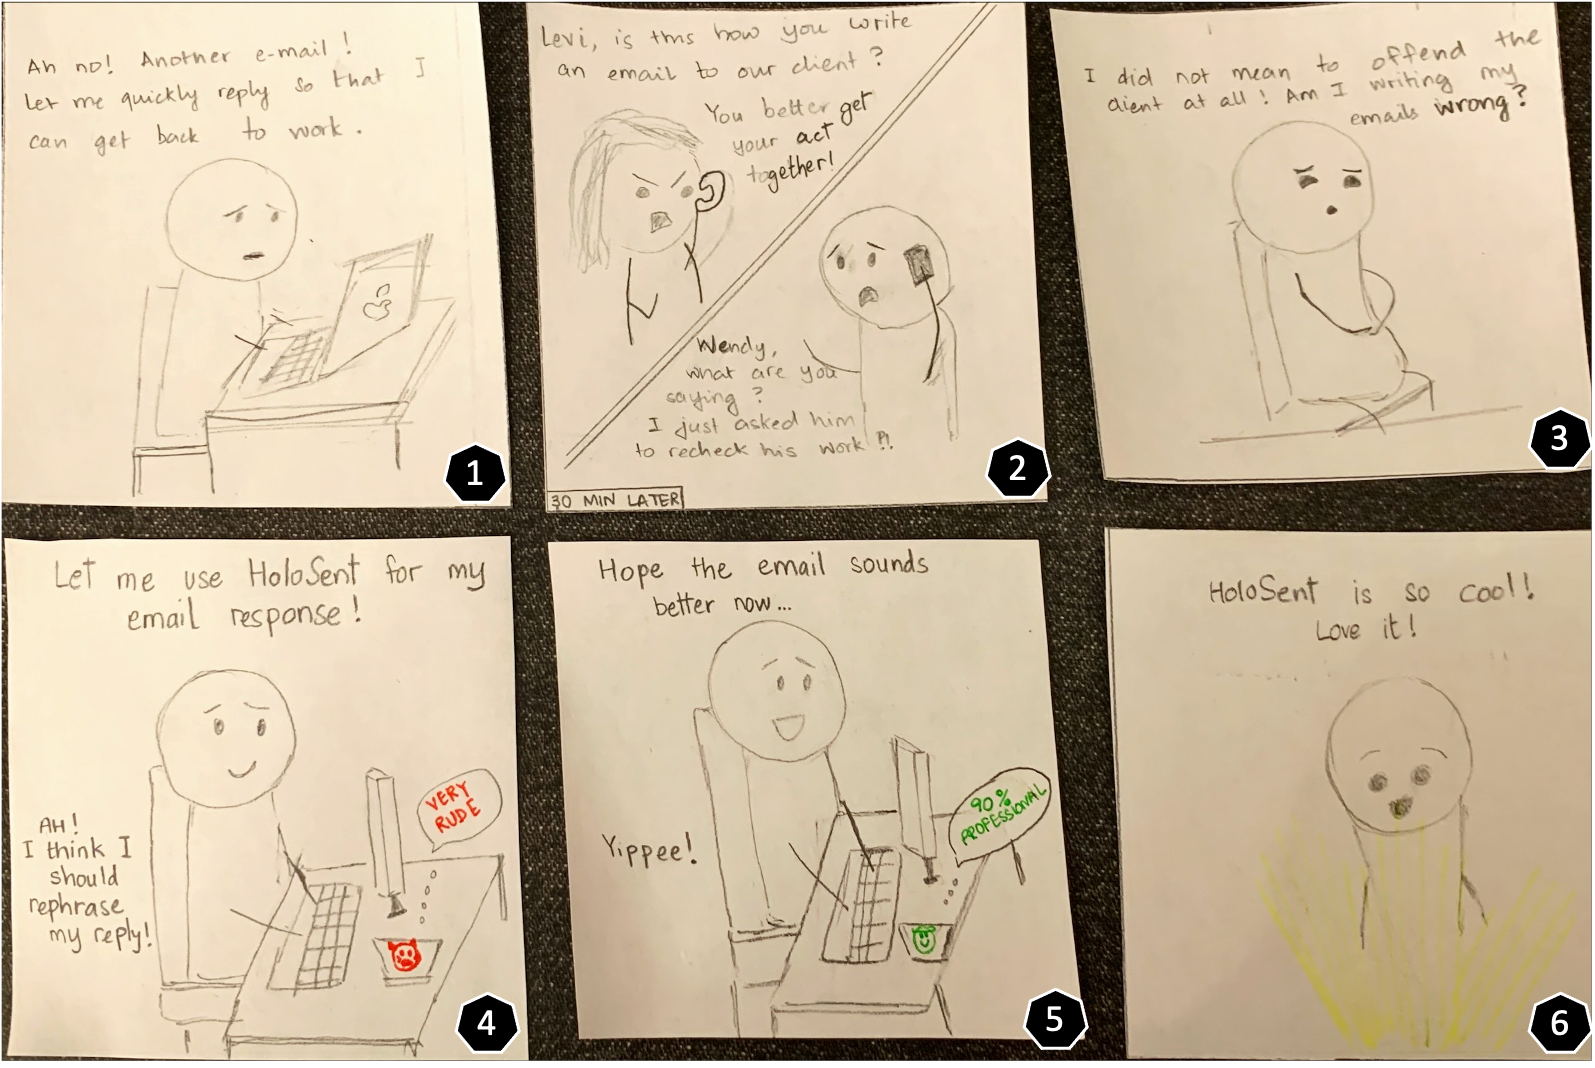 Ah no! Another e-mail!
Let me quickly reply so that I
can get back to work.
1
Levi, is this how you write
an email to our client?
You better get
your act
together!
Wendy,
what are you
saying?
I just asked him
to recheck his work?!
30 MIN LATER
2
I did not mean to offend the
client at all! Am I writing my
emails wrong?
3
Let me use HoloSent for my
email response!
VERY
RUDE
AH!
I think I
should
rephrase
my reply!
4
Hope the email sounds
better now...
90%
PROFESSIONAL
Yippee!
5
HoloSent is so cool!
Love it!
6